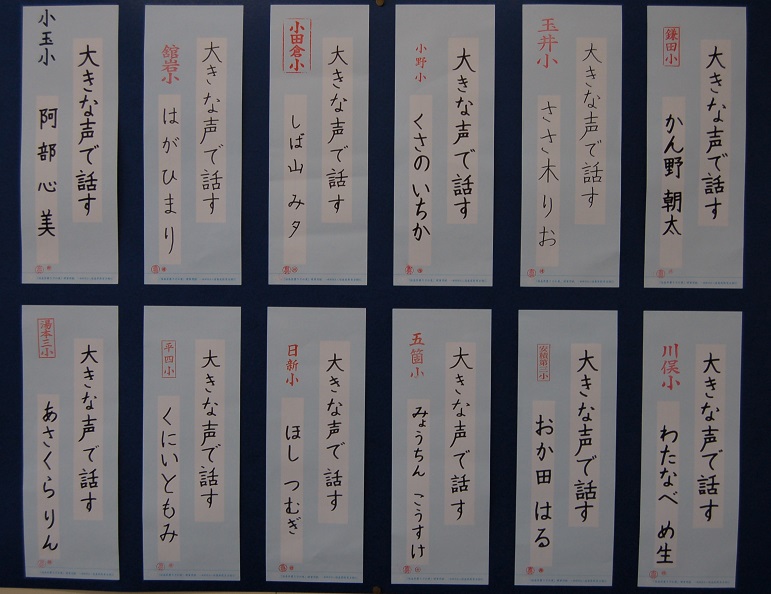 大きな声で話す
鎌田小
かん野 朝太
大きな声で話す
玉井小
ささ木 りお
大きな声で話す
小野小
くさの いちか
大きな声で話す
小田倉小
しば山 みタ
大きな声で話す
舘岩小
はが ひまり
大きな声で話す
小玉小
阿部 心美
大きな声で話す
川俣小
わたなべ め生
大きな声で話す
安積第二小
おか田 はる
大きな声で話す
五箇小
みょうちん こうすけ
大きな声で話す
日新小
ほし つむぎ
大きな声で話す
平四小
くにい ともみ
大きな声で話す
湯本三小
あさくら りん